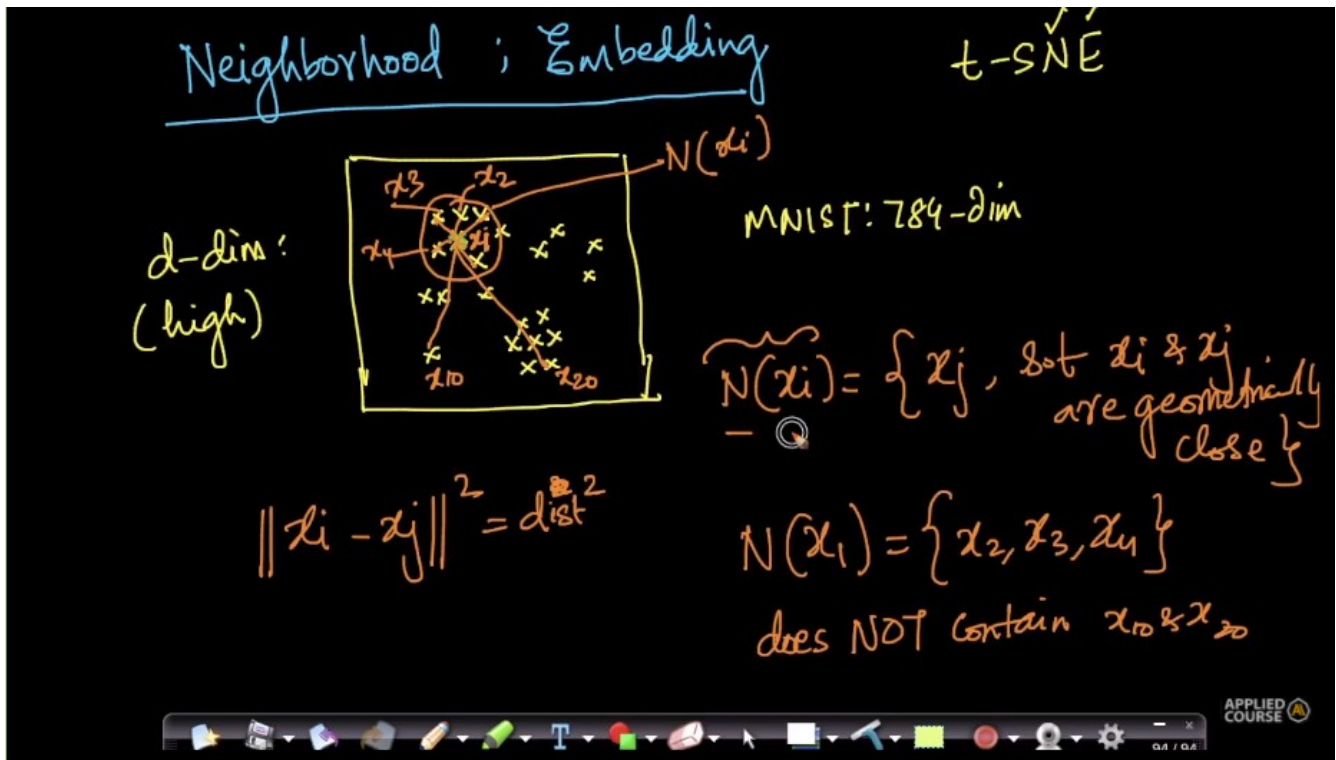 Neighborhood ; Embedding
t-SNE
N(xi)
x3 x2
x4 xi
d-dim:
(high)
x10 x20
MNIST: 784-dim
N(xi) = { xj, s.t xi & xj
are geometrically
close }
||xi - xj||² = dist²
N(x1) = {x2, x3, x4}
does NOT contain x10 & x20
APPLIED
COURSE
T
94 / 94